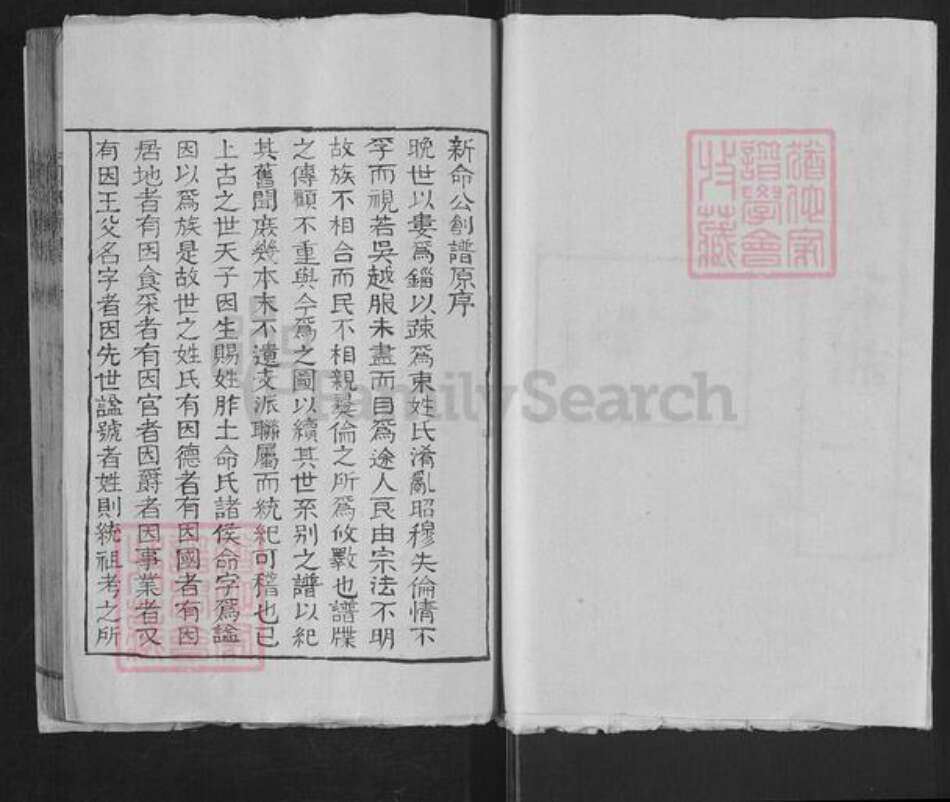 新命公創譜原序
晚世以婁爲鎦以踈爲東姓氏淆亂昭穆失倫情不
孚而視若吳越服未盡而目爲途人良由宗法不明
故族不相合而民不相親彛倫之所爲攸斁也譜牒
之傳顧不重與今爲之圖以續其世系别之譜以紀
其舊聞庻幾本末不遺支派聯屬而統紀可稽也已
上古之世天子因生賜姓胙土命氏諸侯命字爲謚
因以爲族是故世之姓氏有因德者有因國者有因
居地者有因食采者有因官者因爵者因事業者又
有因王父名字者因先世謚號者姓則統祖考之所
FamilySearch